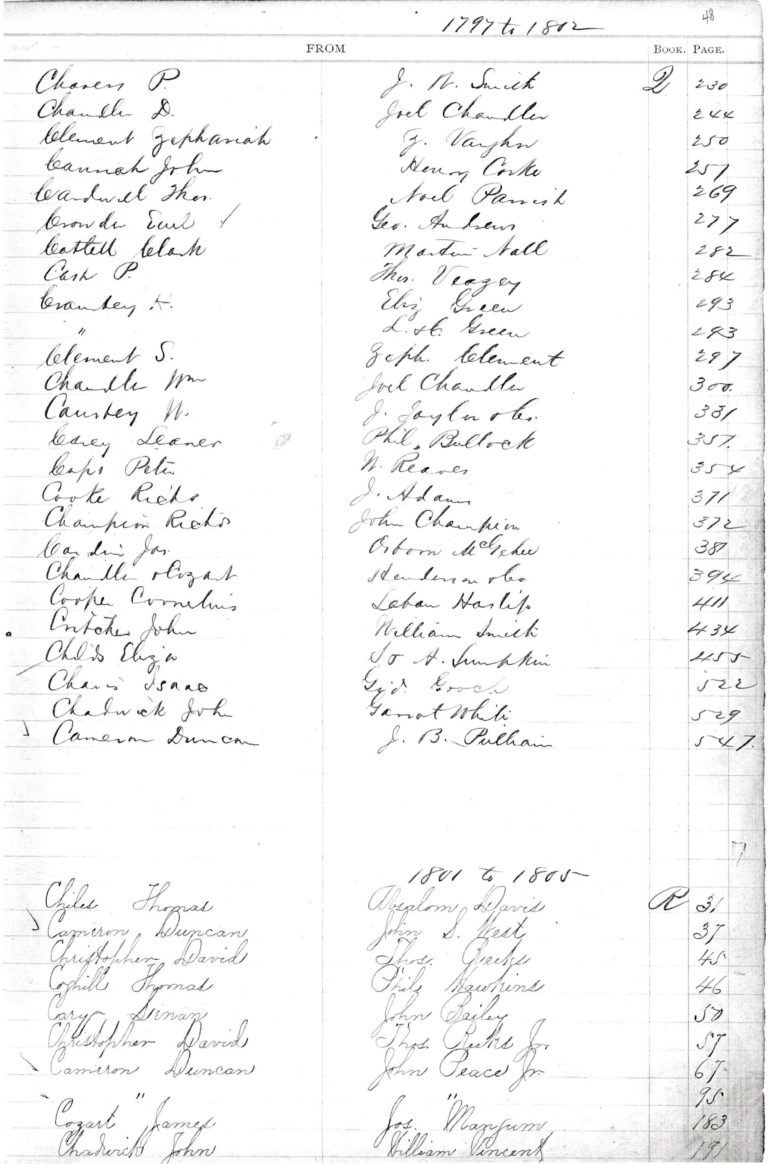 48
1797 to 1802
FROM BOOK. PAGE.
Chavers P. J. W. Smith Q 230
Chandler D. Joel Chandler 244
Clement Zephaniah Z. Vaughn 250
Cannah John Henry Cooke 257
Cardwell Thos. Noel Parrish 269
Crowder Geo. Andrews 277
Catlett Clark Martin Nall 282
Cash P. Thos. Veazey 284
Eliz Green 293
" L. & C. Green 293
Clement S. Zeph. Clement 297
Chandler Wm Joel Chandler 300.
Causbey W. J. Taylor & Co. 331
Phil. Bullock 357.
Caps Peter W. Reaves 354
Cooke Rich'd J. Adams 371
Champion Rich'd John Champion 372
Cardin Jas. Osborn McGehee 381
Chandler & Cozart Henderson & Co 394
Cooper Cornelius Laban Haslip 411
Critcher John William Smith 434
Childs Eliza A. Lumpkin 455
Chavis Isaac Gid. Gooch 522
Chadwick John Garrot White 529
Cameron Duncan J. B. Pulliam 547.
1801 to 1805
Chiles Thomas Absalom Davis R 31
Cameron Duncan John S. West 37
Christopher David Thos. Reeks 45
Coghill Thomas Phil Hawkins 46
Cary John Bailey 50
Christopher David Thos. Reeks Jr. 57
Cameron Duncan John Peace Jr. 67
" " 95
Cozart James Jos. Mangum 183
Chadwick John William Vincent 191